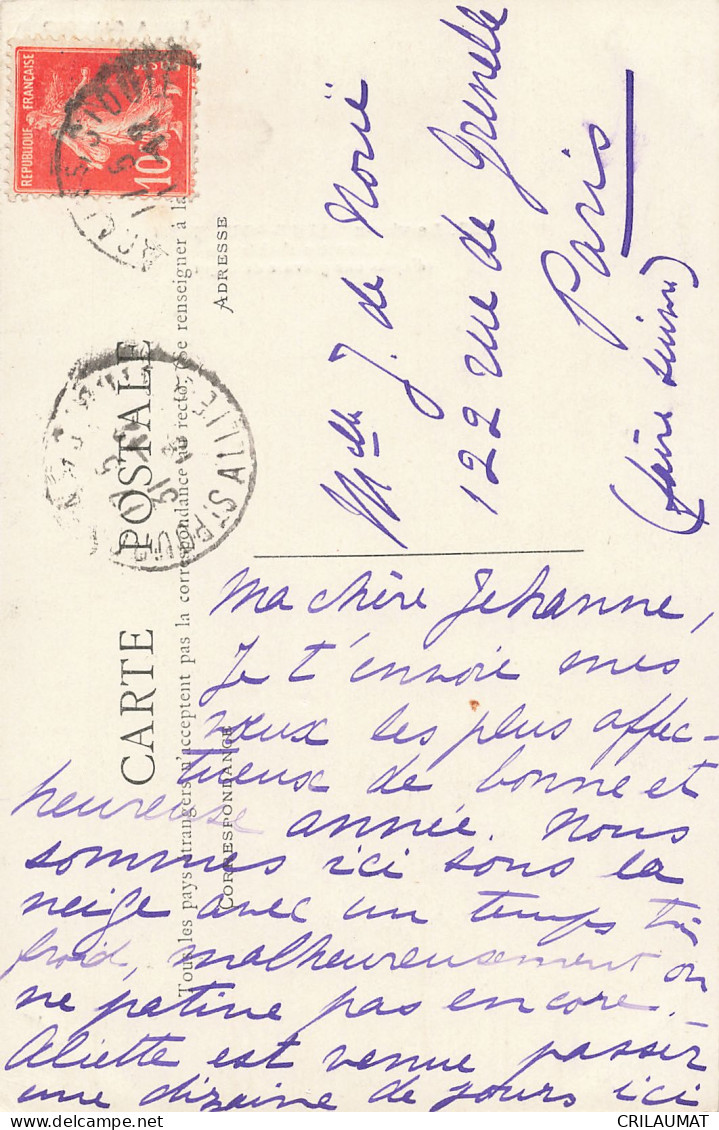 REPUBLIQUE FRANÇAISE
10
CARTE POSTALE
Tous les pays étrangers n'acceptent pas la correspondance au recto, (Se renseigner à la
CORRESPONDANCE
ADRESSE
Melle J. de Noüe
122 rue de Grenelle
Paris
(faire suivre)
Ma chère Jehanne,
Je t'envoie mes
vœux les plus affec-
tueux de bonne et
heureuse année. Nous
sommes ici sous la
neige avec un temps très
froid, malheureusement on
ne patine pas encore.
Aliette est venue passer
une dizaine de jours ici
delcampe.net
CRILAUMAT